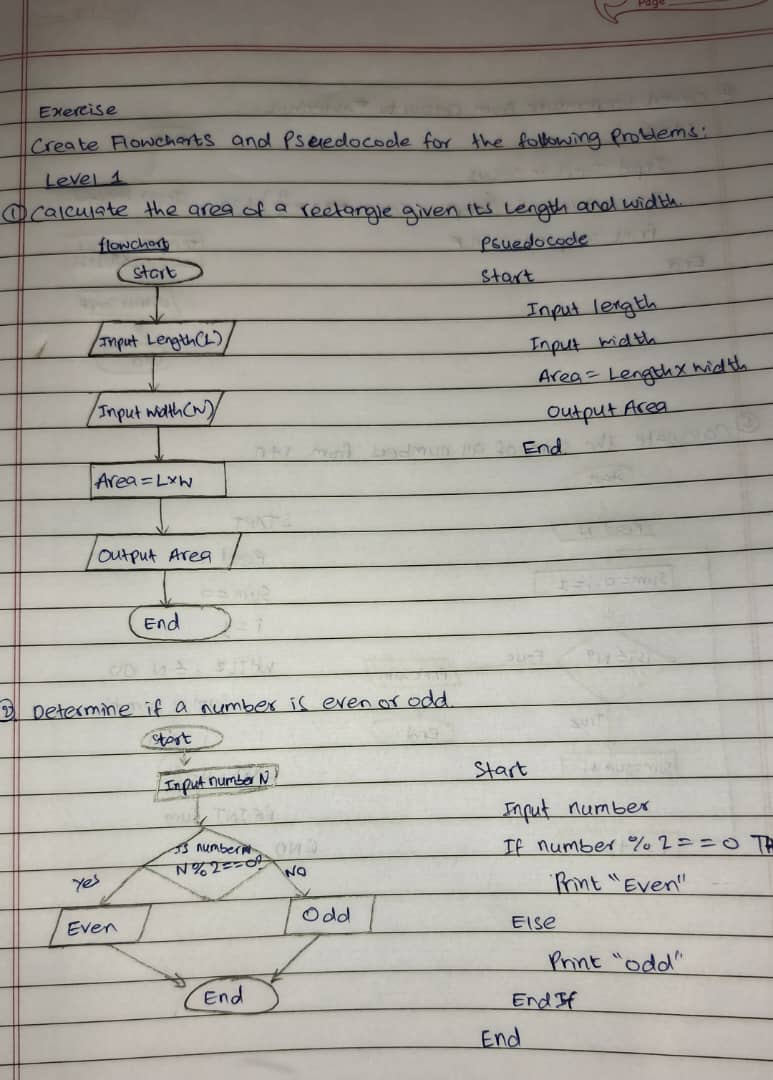 Page
Exercise
Create Flowcharts and Pseuedocode for the following Problems:
Level 1
① Calculate the area of a rectangle given its Length and width.
flowchart
Start
Input Length(L)
Input width(W)
Area = L×W
Output Area
End
Psuedocode
Start
Input length
Input width
Area = Length × width
Output Area
End
② Determine if a number is even or odd.
Start
Input number N
Is number N
N % 2 == 0?
Yes
NO
Even
Odd
End
Start
Input number
If number % 2 == 0
Print "Even"
Else
Print "odd"
End If
End